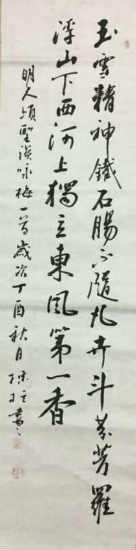 玉雪精神鐵石腸不隨凡卉斗芬芳羅
浮山下西河上獨立東風第一香
明人項聖謨詠梅一首歲次丁酉秋月陳書